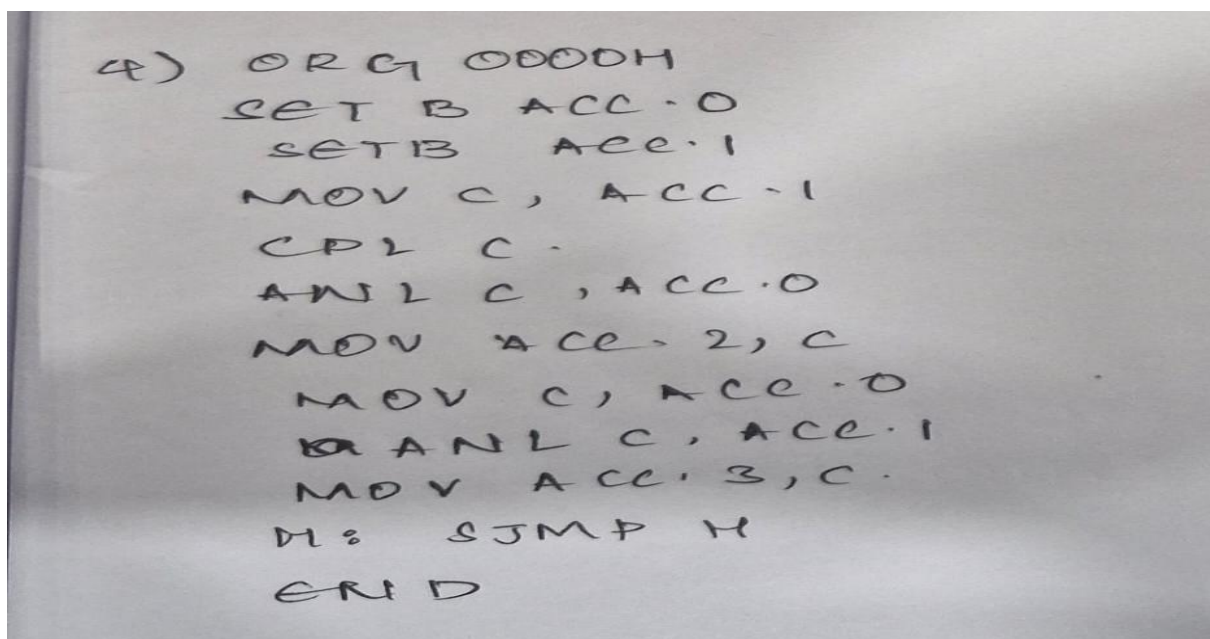 4) ORG 0000H
SETB ACC.0
SETB ACC.1
MOV C, ACC.1
CPL C.
ANL C, ACC.0
MOV ACC.2, C
MOV C, ACC.0
ANL C, ACC.1
MOV ACC.3, C.
H: SJMP H
END